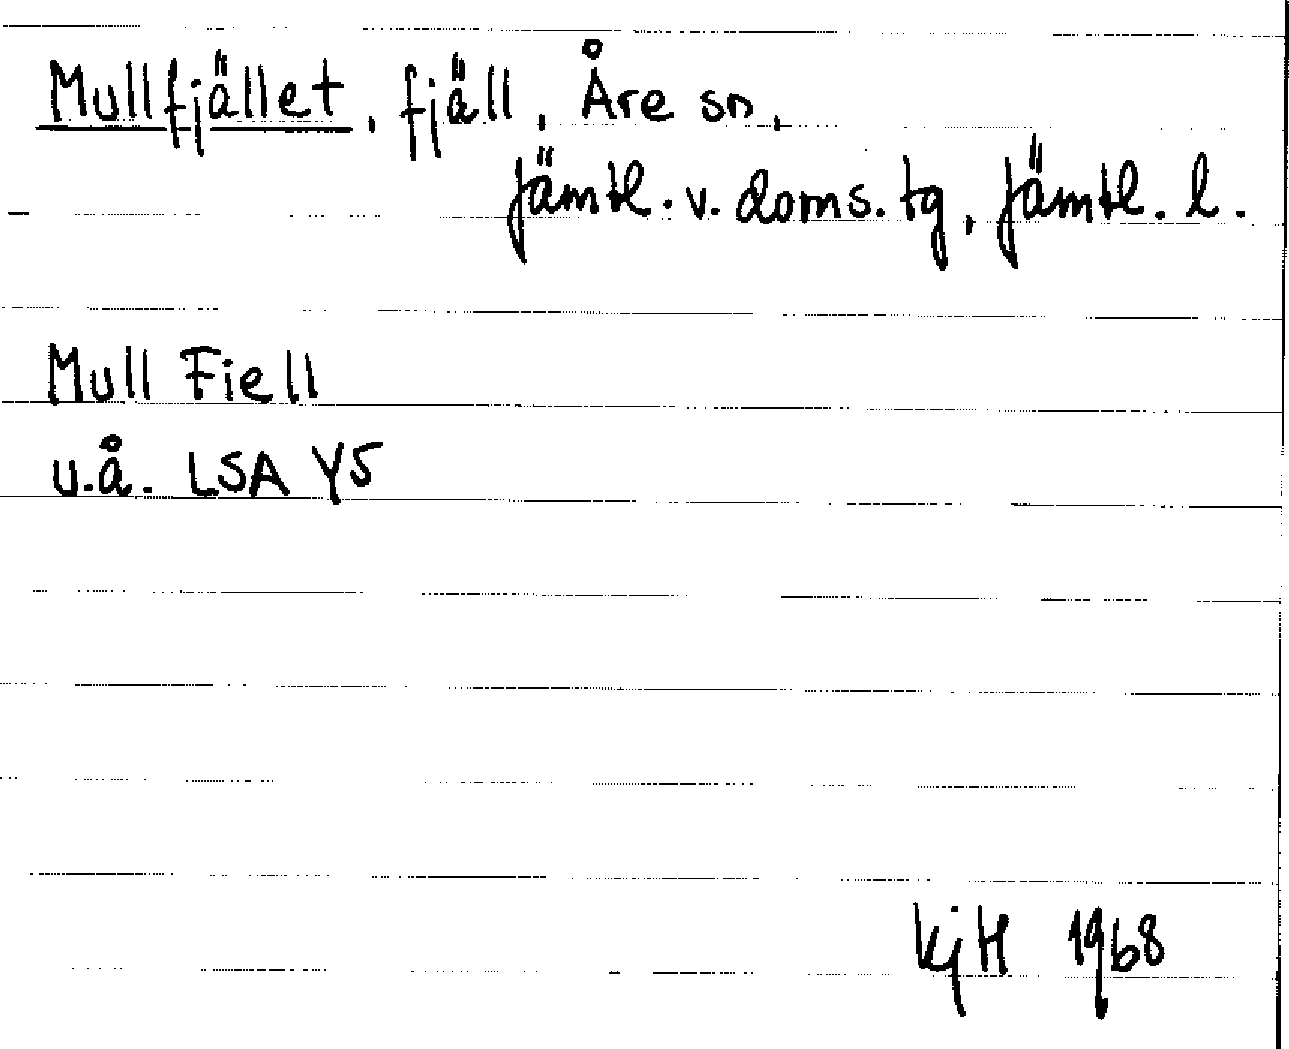 Mullfjället, fjäll, Åre sn,
Jämtl. v. doms. tg, Jämtl. l.
Mull Fiell
u.å. LSA Y5
KjH 1968